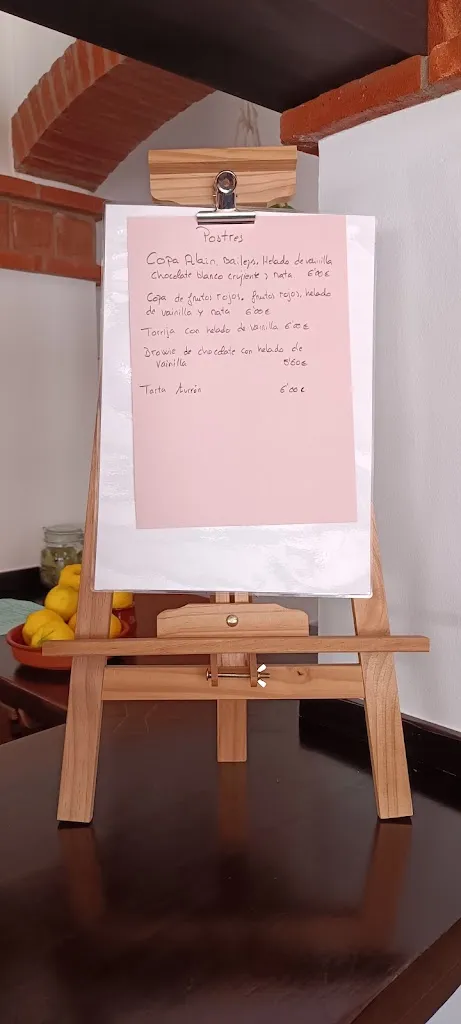 Postres
Copa Alain. Baileys. Helado de vainilla
chocolate blanco crujiente y nata 6'00 €
Copa de frutos rojos. frutos rojos, helado
de vainilla y nata 6'00 €
Torrija con helado de vainilla 6'00 €
Brownie de chocolate con helado de
vainilla 5'60 €
Tarta turrón 6'00 €